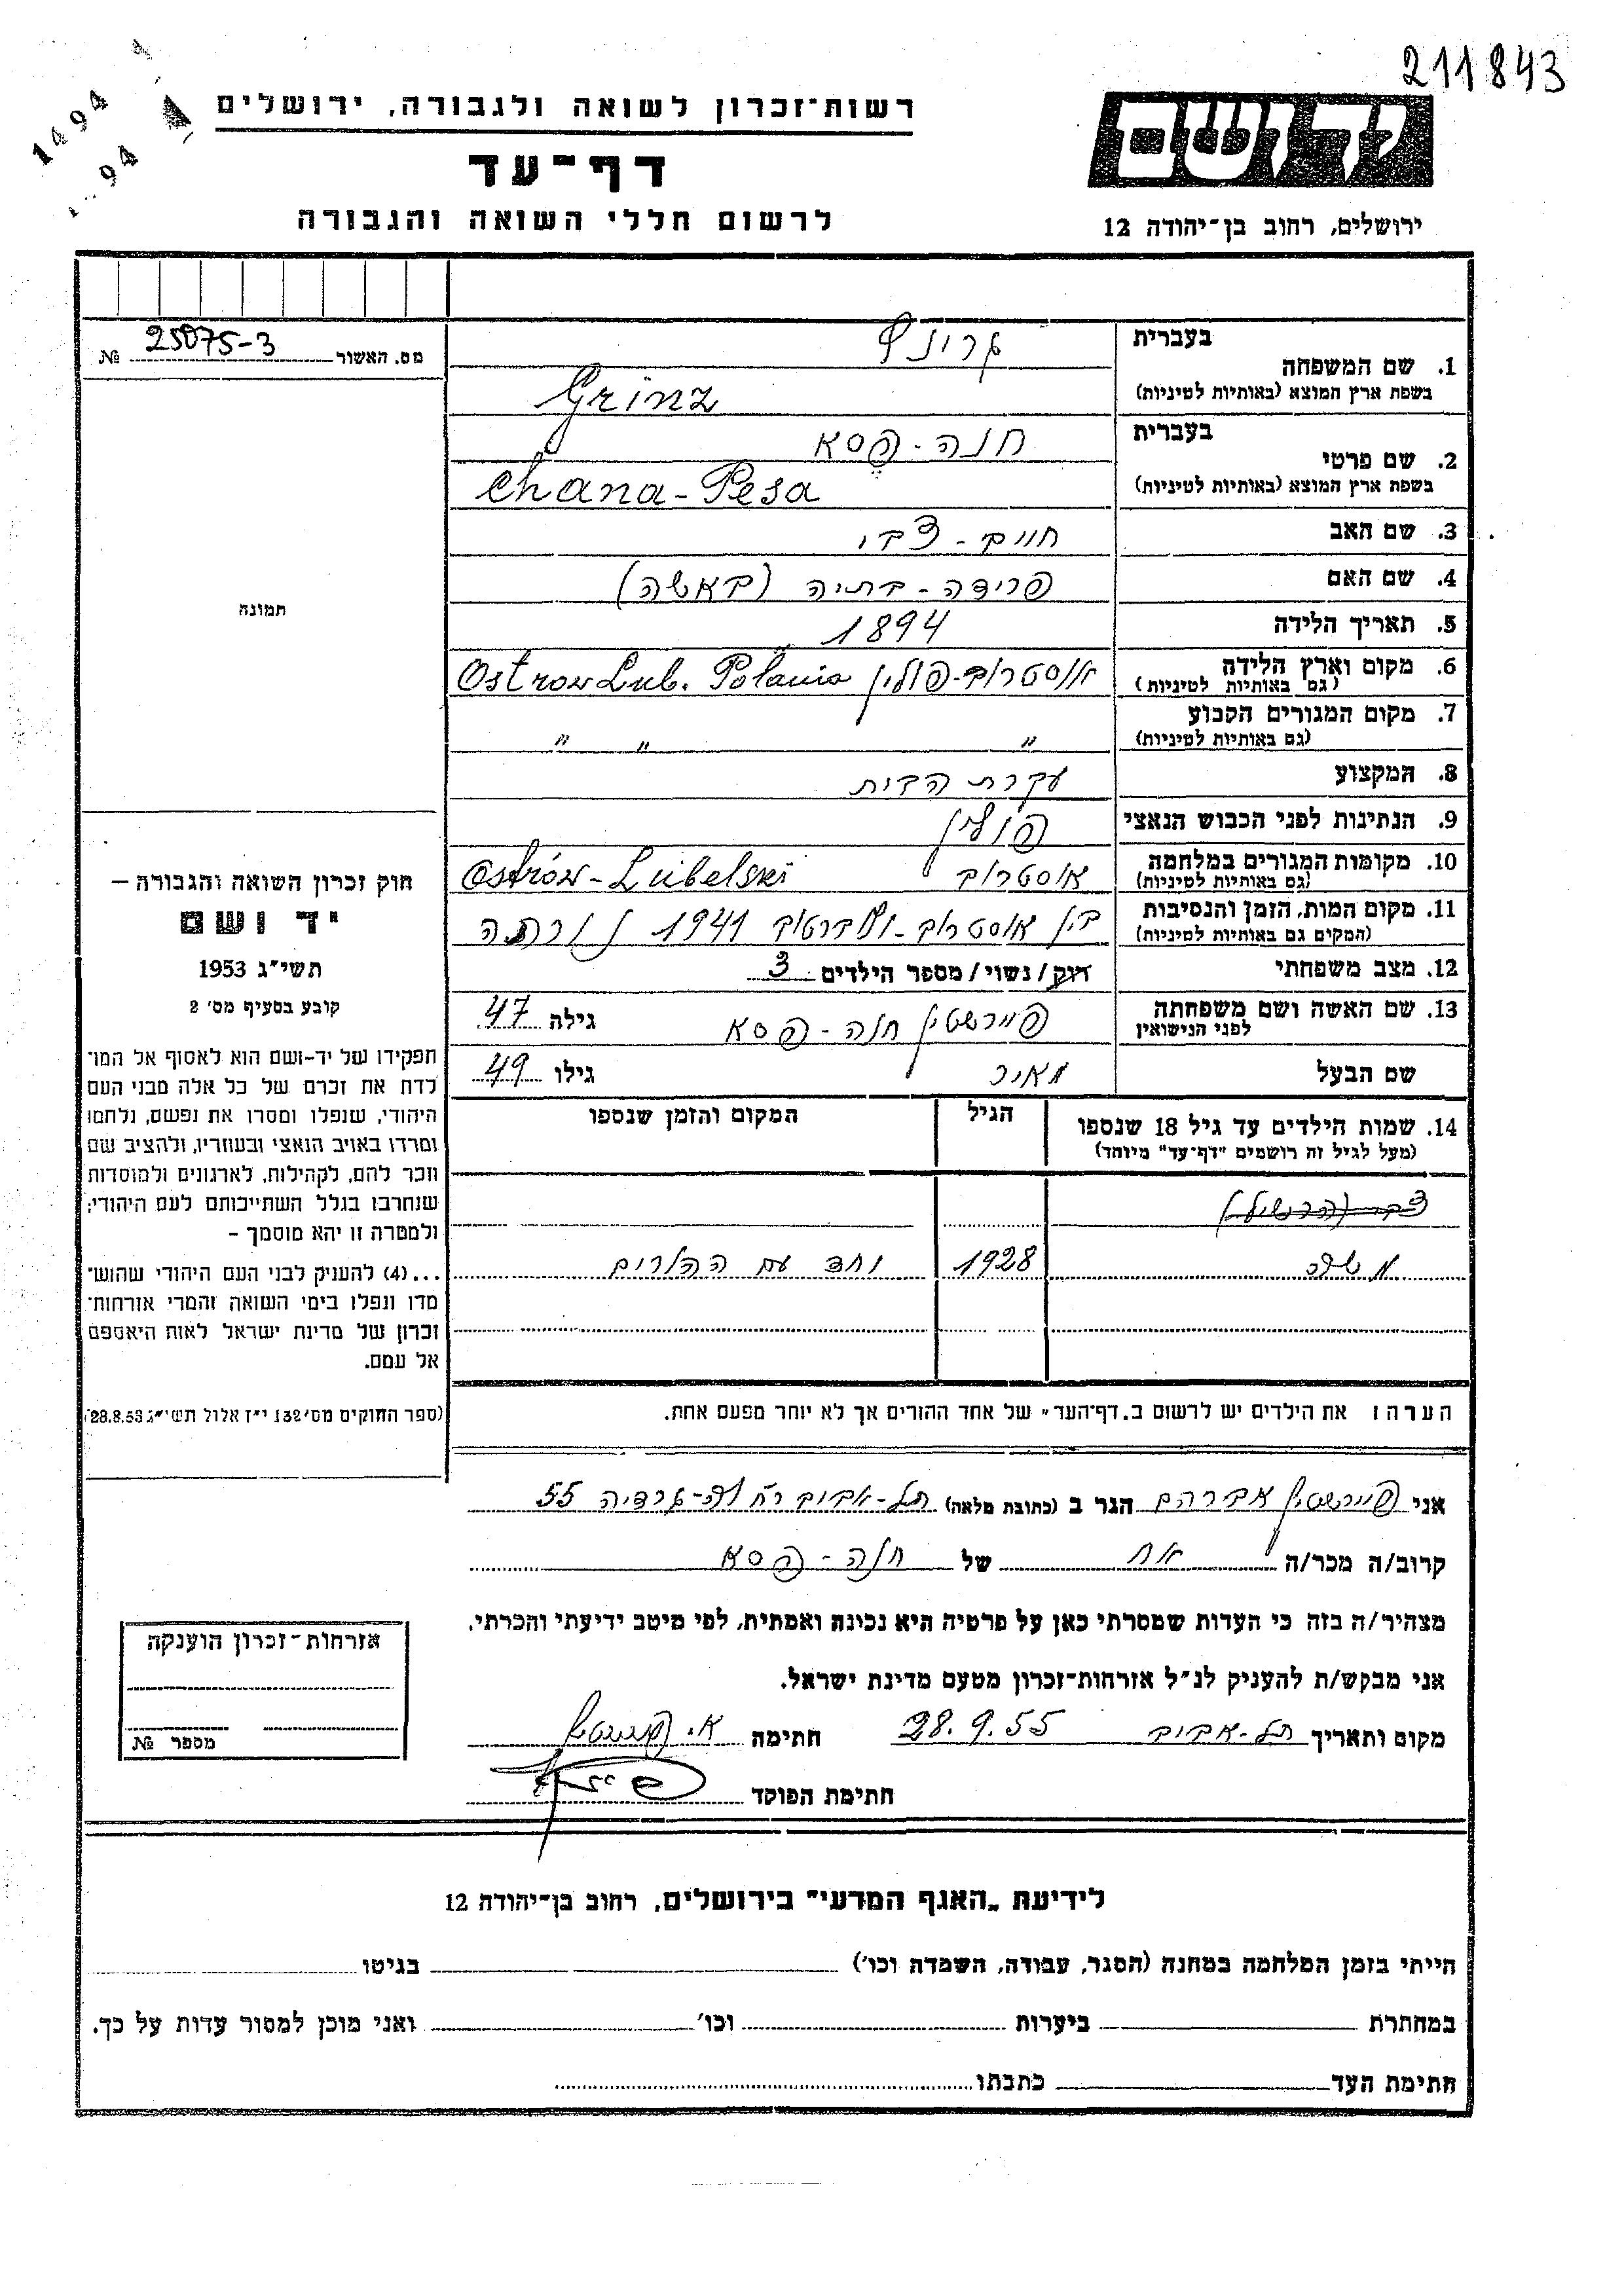 211843
1494
94
רשות-זכרון לשואה ולגבורה, ירושלים
דף-עד
לרשום חללי השואה והגבורה
יד ושם
ירושלים, רחוב בן-יהודה 12
מס. האשור 25075-3 №
תמונה
חוק זכרון השואה והגבורה —
יד ושם
תשי"ג 1953
קובע בסעיף מס' 2
תפקידו של יד-ושם הוא לאסוף אל המו־
לדת את זכרם של כל אלה מבני העם
היהודי, שנפלו ומסרו את נפשם, נלחמו
ומרדו באויב הנאצי ובעוזריו, ולהציב שם
וזכר להם, לקהילות, לארגונים ולמוסדות
שנחרבו בגלל השתייכותם לעם היהודי;
ולמטרה זו יהא מוסמך –
...(4) להעניק לבני העם היהודי שהוש־
מדו ונפלו בימי השואה והמרי אזרחות־
זכרון של מדינת ישראל לאות היאספם
אל עמם.
(ספר החוקים מס' 132 י"ז אלול תשי"ג 28.8.53)
בעברית
1. שם המשפחה גרינץ
בשפת ארץ המוצא (באותיות לטיניות) Grinz
בעברית
2. שם פרטי חנה-פסא
בשפת ארץ המוצא (באותיות לטיניות) Chana-Pesa
3. שם האב חיים-צבי
4. שם האם פרידה-בתיה (באשה)
5. תאריך הלידה 1894
6. מקום וארץ הלידה אוסטרוב-פולין Ostrow Lub. Polania
(גם באותיות לטיניות)
7. מקום המגורים הקבוע " " "
(גם באותיות לטיניות)
8. המקצוע עקרת הבית
9. הנתינות לפני הכבוש הנאצי פולין
10. מקומות המגורים במלחמה אוסטרוב Ostrów-Lubelski
(גם באותיות לטיניות)
11. מקום המות, הזמן והנסיבות בין אוסטרוב-ולוברטוב 1941 נורתה
(המקום גם באותיות לטיניות)
12. מצב משפחתי רוק/נשוי/מספר הילדים 3
13. שם האשה ושם משפחתה פיירשטין חנה-פסא גילה 47
לפני הנישואין
שם הבעל מאיר גילו 49
14. שמות הילדים עד גיל 18 שנספו הגיל המקום והזמן שנספו
(מעל לגיל זה רושמים "דף-עד" מיוחד)
משה 1928 יחד עם ההורים
הערה: את הילדים יש לרשום ב„דף-העד" של אחד ההורים אך לא יותר מפעם אחת.
אני פיירשטין אברהם הגר ב (כתובת מלאה) תל-אביב רח' 55
קרוב/ה מכר/ה אח של חנה-פסא
מצהיר/ה בזה כי העדות שמסרתי כאן על פרטיה היא נכונה ואמתית, לפי מיטב ידיעתי והכרתי.
אני מבקש/ת להעניק לנ"ל אזרחות-זכרון מטעם מדינת ישראל.
מקום ותאריך תל-אביב 28.9.55 חתימה א. פיירשטין
חתימת הפוקד
אזרחות-זכרון הוענקה
מספר №
לידיעת „האגף המדעי" בירושלים, רחוב בן-יהודה 12
הייתי בזמן המלחמה במחנה (הסגר, עבודה, השמדה וכו') בגיטו
במחתרת ביערות וכו' ואני מוכן למסור עדות על כך.
חתימת העד כתבתו